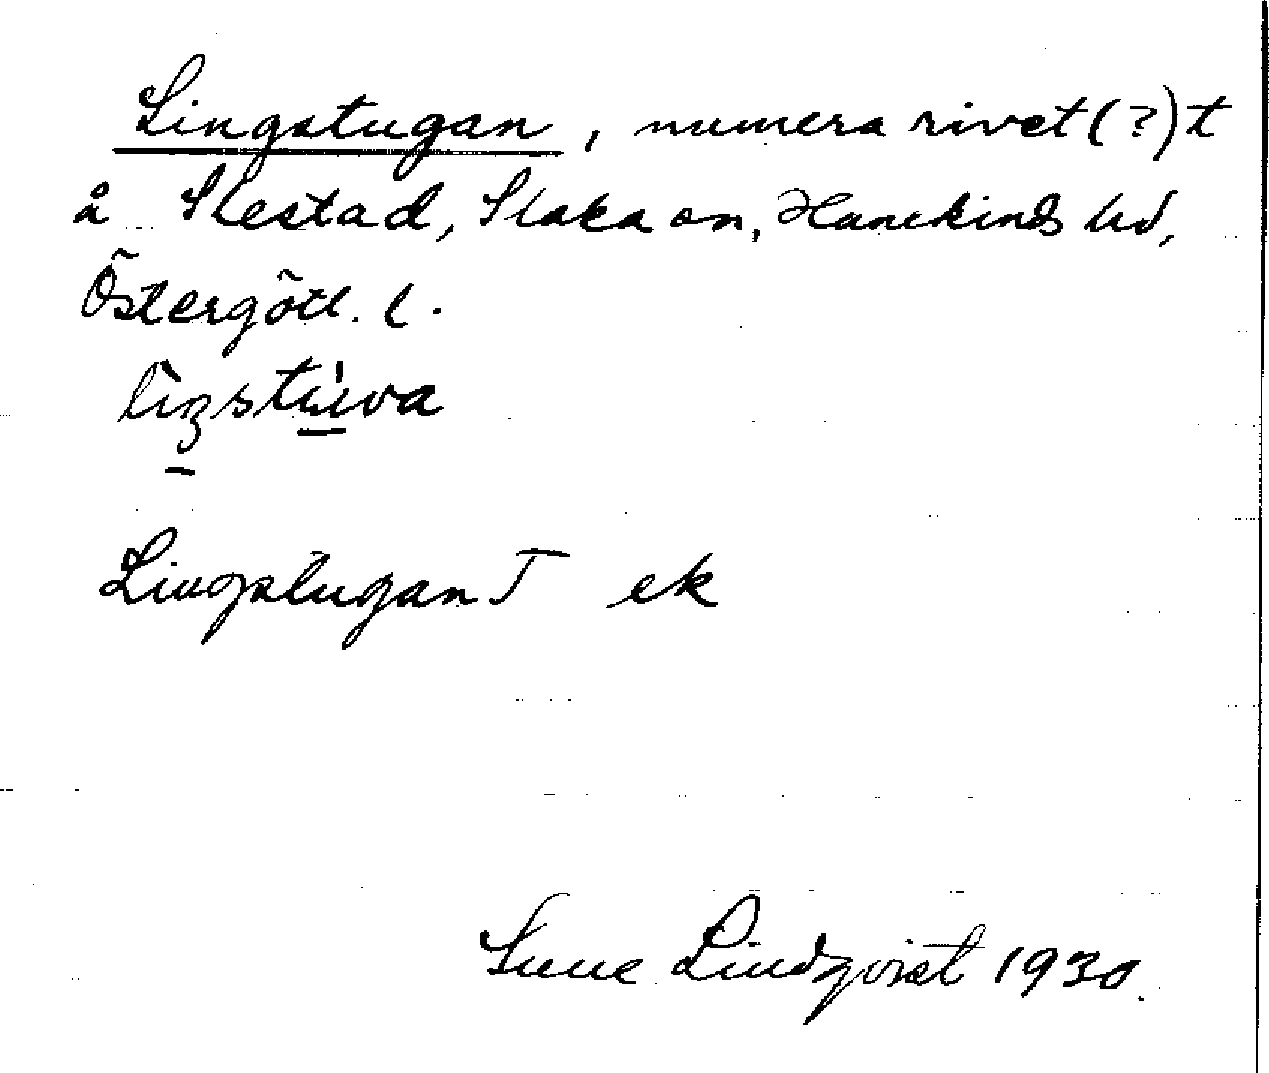 Lingstugan, numera rivet(?) t
å Slestad, Slaka sn, Hanekinds hd,
Östergötl. l.
Lingstugan T ek
Sune Lindqvist 1930.